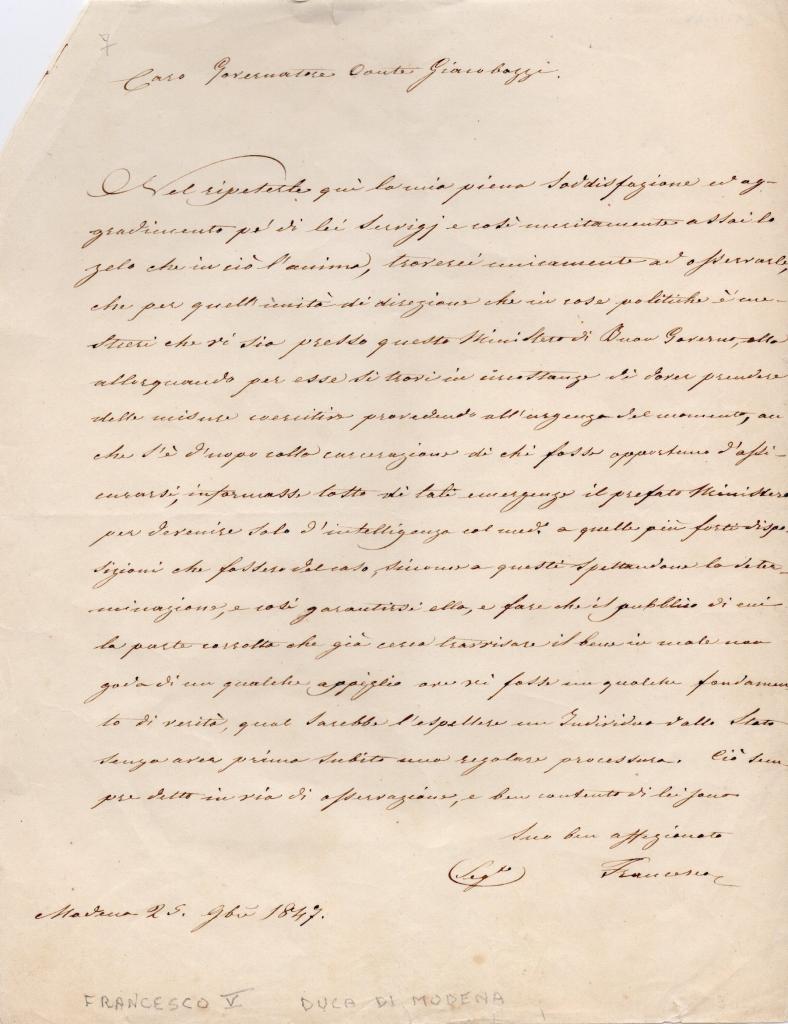 7
Caro Governatore Conte Giacobazzi.
Nel ripeterle quì la mia piena soddisfazione ed ag-
gradimento pe' di lei servigj e così meritamente assai lo
zelo che in ciò l'anima, troverei unicamente ad osservarle,
che per quell'unità di direzione che in cose politiche è me-
stieri che vi sia presso questo Ministero di Buon Governo, ella
allorquando per esse si trovi in circostanze di dover prendere
delle misure coercitive provedendo all'urgenza del momento, an
che s'è d'uopo colla carcerazione di chi fosse opportuno d'assi-
curarsi, informasse tosto di tali emergenze il prefato Ministero
per devenire solo d'intelligenza col med.º a quelle più forti dispo-
sizioni che fossero del caso, siccome a questi spettandone la deter-
minazione, e così garantirsi ella, e fare che il pubblico di cui
la parte corrotta che già cerca travvisare il bene in male non
goda di un qualche appiglio ove vi fosse un qualche fondamen
to di verità, qual sarebbe l'espellere un Individuo dallo Stato
senza aver prima subito una regolare processura. Ciò sem-
pre detto in via di osservazione, e ben contento di lei sono
Suo ben affezionato
(Seg.to) Francesco
Modena 25. 9bre 1847.
FRANCESCO V DUCA DI MODENA